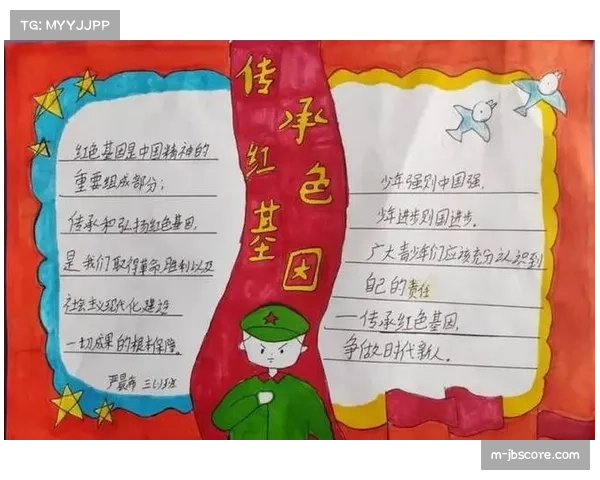 TG: MYYJJPP
传承红色基因
红色基因是中国精神的
重要组成部分；
传承和弘扬红色基因，
是我们取得革命胜利以及
社会主义现代化建设
一切成果的根本保障。
三(3)班
少年强则中国强，
少年进步则国进步。
广大青少年们应该充分认识到
自己的责任
—传承红色基因，
争做时代新人。
m-jbscore.com